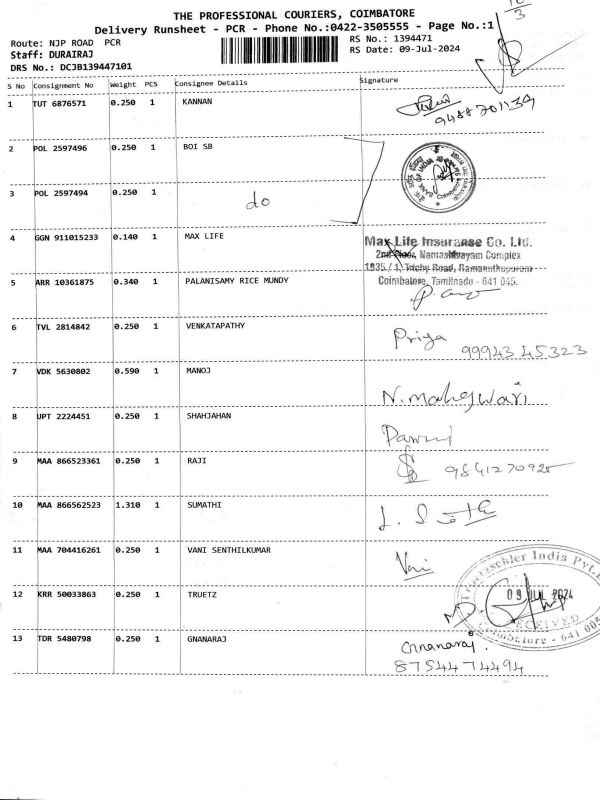 THE PROFESSIONAL COURIERS, COIMBATORE
Delivery Runsheet - PCR - Phone No:0422-3505555 - Page No.:1
Route: NJP ROAD PCR
Staff: DURAIRAJ
DRS No.: DCJB139447101
RS No.: 1394471
RS Date: 09-Jul-2024
S No Consignment No Weight PCS Consignee Details Signature
1 TUT 6876571 0.250 1 KANNAN
9488701139
2 POL 2597496 0.250 1 BOI SB
3 POL 2597494 0.250 1 do
4 GGN 911015233 0.140 1 MAX LIFE
Max Life Insurance Co. Ltd.
2nd Floor, Namashivayam Complex
1935 / 1, Trichy Road, Ramanathapuram
Coimbatore, Tamilnadu - 641 045.
5 ARR 10361875 0.340 1 PALANISAMY RICE MUNDY
6 TVL 2814842 0.250 1 VENKATAPATHY Priya
99943 45323
7 VDK 5630802 0.590 1 MANOJ N. maheswari
8 UPT 2224451 0.250 1 SHAHJAHAN
9 MAA 866523361 0.250 1 RAJI
10 MAA 866562523 1.310 1 SUMATHI
11 MAA 704416261 0.250 1 VANI SENTHILKUMAR Vani
12 KRR 50033863 0.250 1 TRUETZ
Truetzschler India Pvt.
09 JUL 2024
RECEIVED
Coimbatore - 641 005
13 TDR 5480798 0.250 1 GNANARAJ Gnanaraj.
8754474494